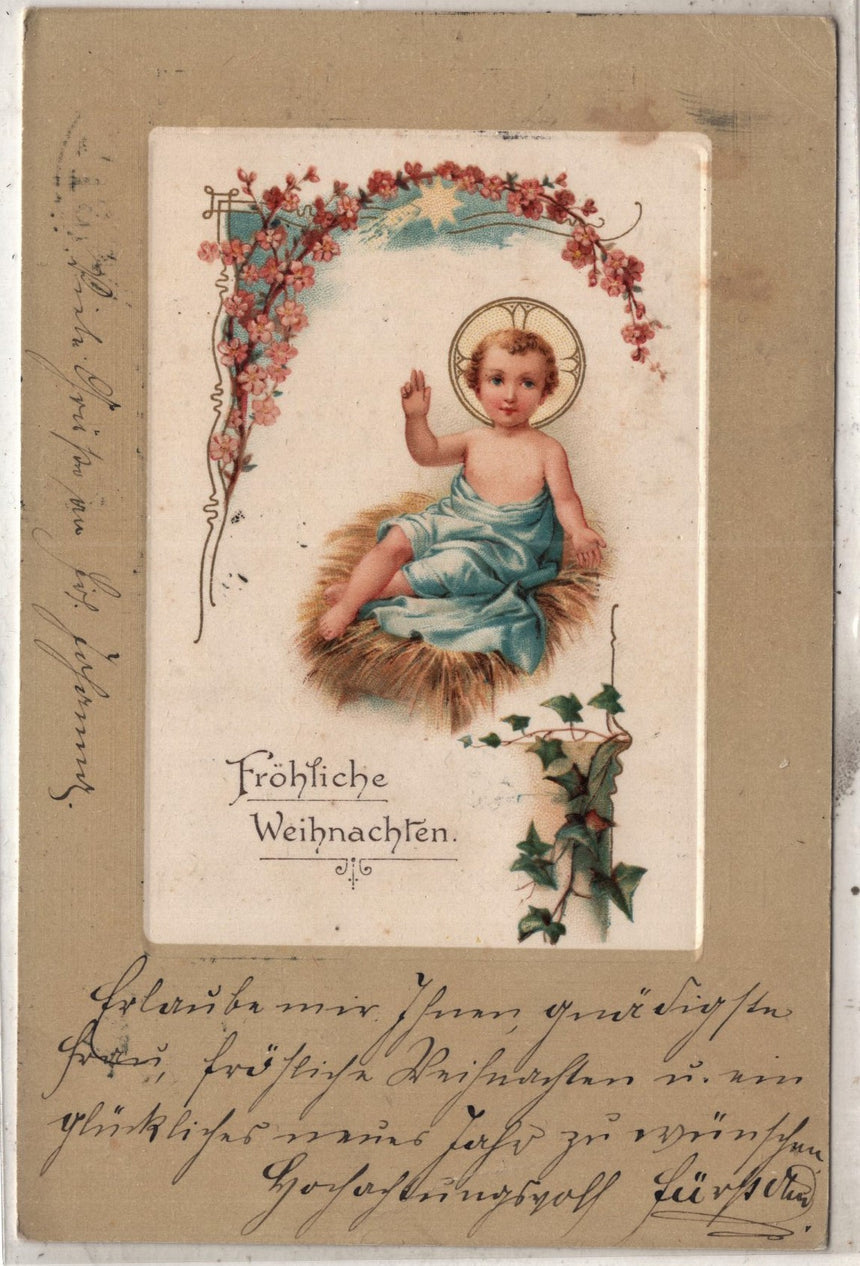 Fröhliche
Weihnachten.
Erlaube mir, Ihnen, gnädigste
Frau, fröhliche Weihnachten u. ein
glückliches neues Jahr zu wünschen.
Hochachtungsvoll
Viele Grüße an